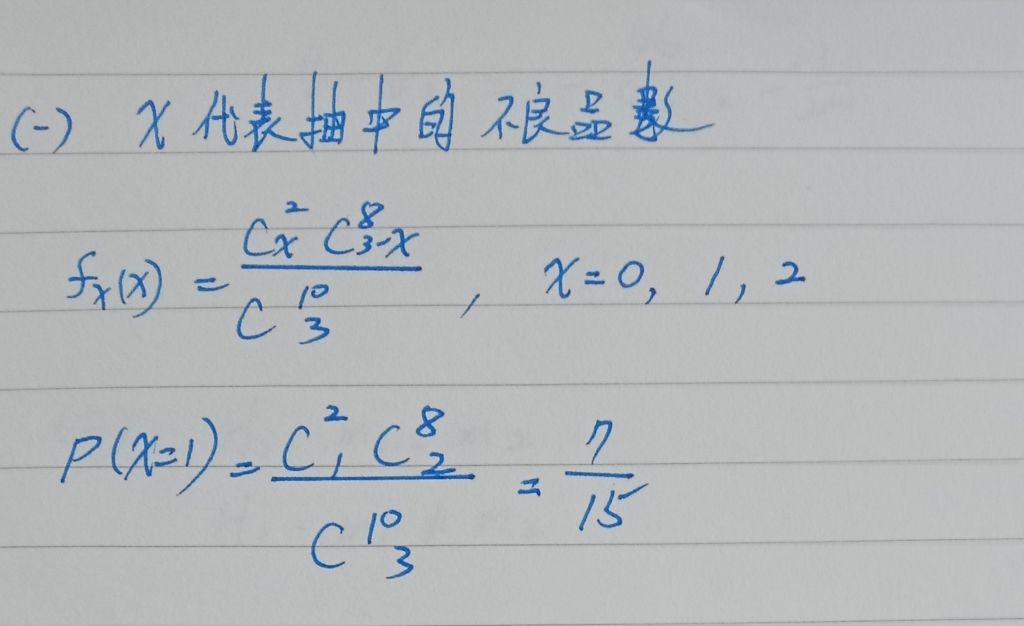 (一) X 代表抽中的不良品數
f_X(x) = \frac{C^2_x C^8_{3-x}}{C^{10}_3} , x=0, 1, 2
P(X=1) = \frac{C^2_1 C^8_2}{C^{10}_3} = \frac{7}{15}